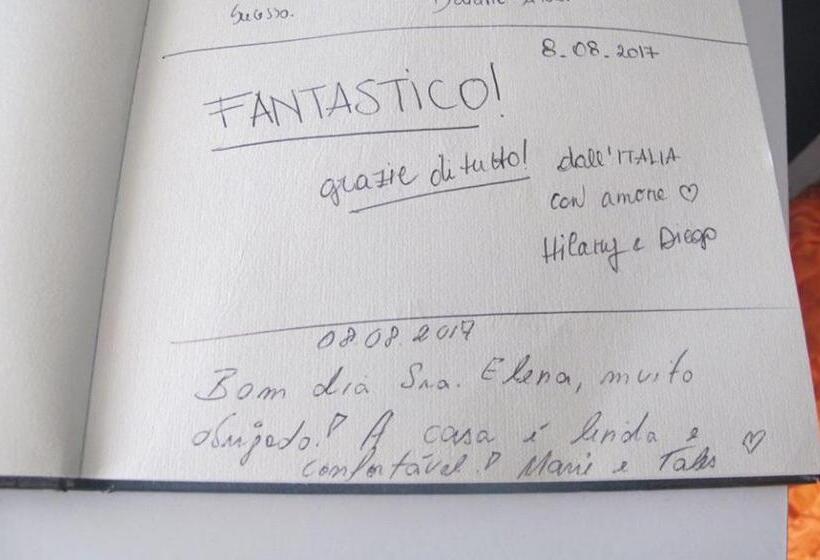 Sucesso.
8.08.2017
FANTASTICO!
grazie di tutto!
dall'ITALIA
con amore ♡
Hilary e Diego
08.08.2017
Bom dia Sra. Elena, muito
obrigado! A casa é linda e
confortável! Marie e Tales ♡